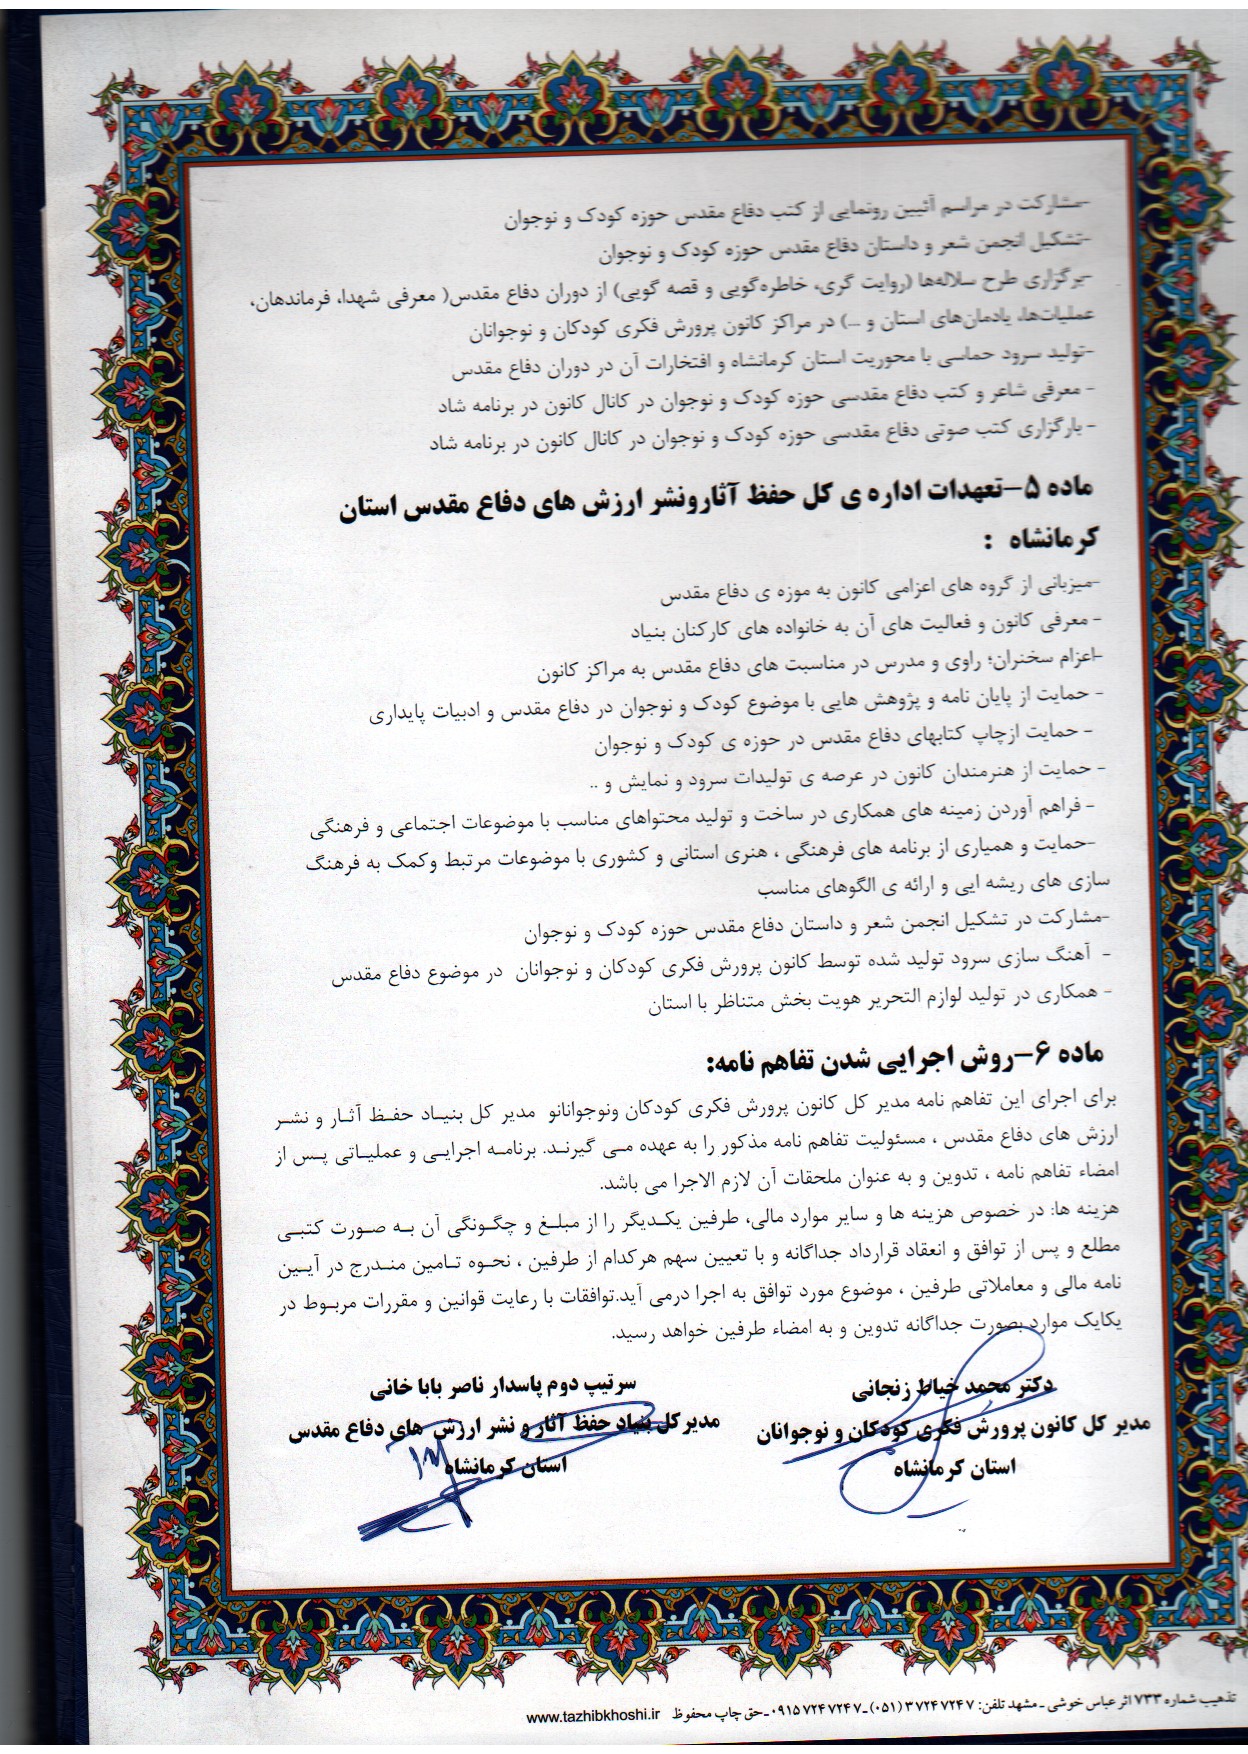 -مشارکت در مراسم آئیین رونمایی از کتب دفاع مقدس حوزه کودک و نوجوان
-تشکیل انجمن شعر و داستان دفاع مقدس حوزه کودک و نوجوان
-برگزاری طرح سلاله‌ها (روایت گری، خاطره‌گویی و قصه گویی) از دوران دفاع مقدس( معرفی شهدا، فرماندهان،
عملیات‌ها، یادمان‌های استان و ...) در مراکز کانون پرورش فکری کودکان و نوجوانان
-تولید سرود حماسی با محوریت استان کرمانشاه و افتخارات آن در دوران دفاع مقدس
- معرفی شاعر و کتب دفاع مقدسی حوزه کودک و نوجوان در کانال کانون در برنامه شاد
- بارگزاری کتب صوتی دفاع مقدسی حوزه کودک و نوجوان در کانال کانون در برنامه شاد
ماده ۵-تعهدات اداره ی کل حفظ آثارونشر ارزش های دفاع مقدس استان
کرمانشاه :
-میزبانی از گروه های اعزامی کانون به موزه ی دفاع مقدس
- معرفی کانون و فعالیت های آن به خانواده های کارکنان بنیاد
-اعزام سخنران؛ راوی و مدرس در مناسبت های دفاع مقدس به مراکز کانون
- حمایت از پایان نامه و پژوهش هایی با موضوع کودک و نوجوان در دفاع مقدس و ادبیات پایداری
- حمایت ازچاپ کتابهای دفاع مقدس در حوزه ی کودک و نوجوان
- حمایت از هنرمندان کانون در عرصه ی تولیدات سرود و نمایش و ..
- فراهم آوردن زمینه های همکاری در ساخت و تولید محتواهای مناسب با موضوعات اجتماعی و فرهنگی
-حمایت و همیاری از برنامه های فرهنگی ، هنری استانی و کشوری با موضوعات مرتبط وکمک به فرهنگ
سازی های ریشه ایی و ارائه ی الگوهای مناسب
-مشارکت در تشکیل انجمن شعر و داستان دفاع مقدس حوزه کودک و نوجوان
- آهنگ سازی سرود تولید شده توسط کانون پرورش فکری کودکان و نوجوانان در موضوع دفاع مقدس
- همکاری در تولید لوازم التحریر هویت بخش متناظر با استان
ماده ۶-روش اجرایی شدن تفاهم نامه:
برای اجرای این تفاهم نامه مدیر کل کانون پرورش فکری کودکان ونوجوانانو مدیر کل بنیاد حفظ آثار و نشر
ارزش های دفاع مقدس ، مسئولیت تفاهم نامه مذکور را به عهده می گیرند. برنامه اجرایی و عملیاتی پس از
امضاء تفاهم نامه ، تدوین و به عنوان ملحقات آن لازم الاجرا می باشد.
هزینه ها: در خصوص هزینه ها و سایر موارد مالی، طرفین یکدیگر را از مبلغ و چگونگی آن به صورت کتبی
مطلع و پس از توافق و انعقاد قرارداد جداگانه و با تعیین سهم هرکدام از طرفین ، نحوه تامین مندرج در آیین
نامه مالی و معاملاتی طرفین ، موضوع مورد توافق به اجرا درمی آید.توافقات با رعایت قوانین و مقررات مربوط در
یکایک موارد بصورت جداگانه تدوین و به امضاء طرفین خواهد رسید.
دکتر محمد خیاط زنجانی
مدیر کل کانون پرورش فکری کودکان و نوجوانان
استان کرمانشاه
سرتیپ دوم پاسدار ناصر بابا خانی
مدیرکل بنیاد حفظ آثار و نشر ارزش های دفاع مقدس
استان کرمانشاه
تذهیب شماره ۷۳۳ اثر عباس خوشی ـ مشهد تلفن: ۳۷۲۴۷۲۴۷ (۰۵۱) ـ ۰۹۱۵۷۲۴۷۲۴۷ ـ حق چاپ محفوظ www.tazhibkhoshi.ir